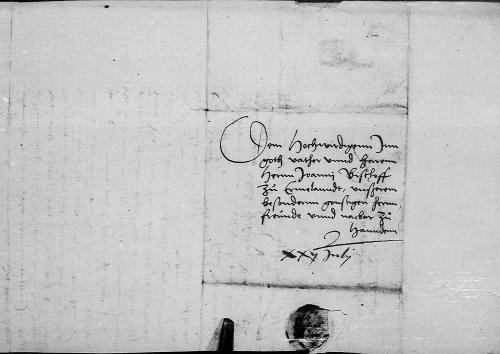 Dem Hochwirdigenn Inn
goth vather unnd herenn
Herrn Joannj Bischoff
zů Ermelanndt, unserenn
besondernn gonstigen herrn,
freunde unnd nackbar zů
Hannden
xxv Julij